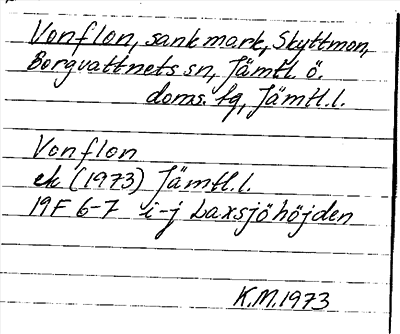 Vonflon, sank mark, Skyttmon,
Borgvattnets sn, Jämtl. ö.
doms. fq, Jämtl.l.
Vonflon
ek (1973) Jämtl.l.
19F 6-7 i-j Laxsjöhöjden
K.M.1973